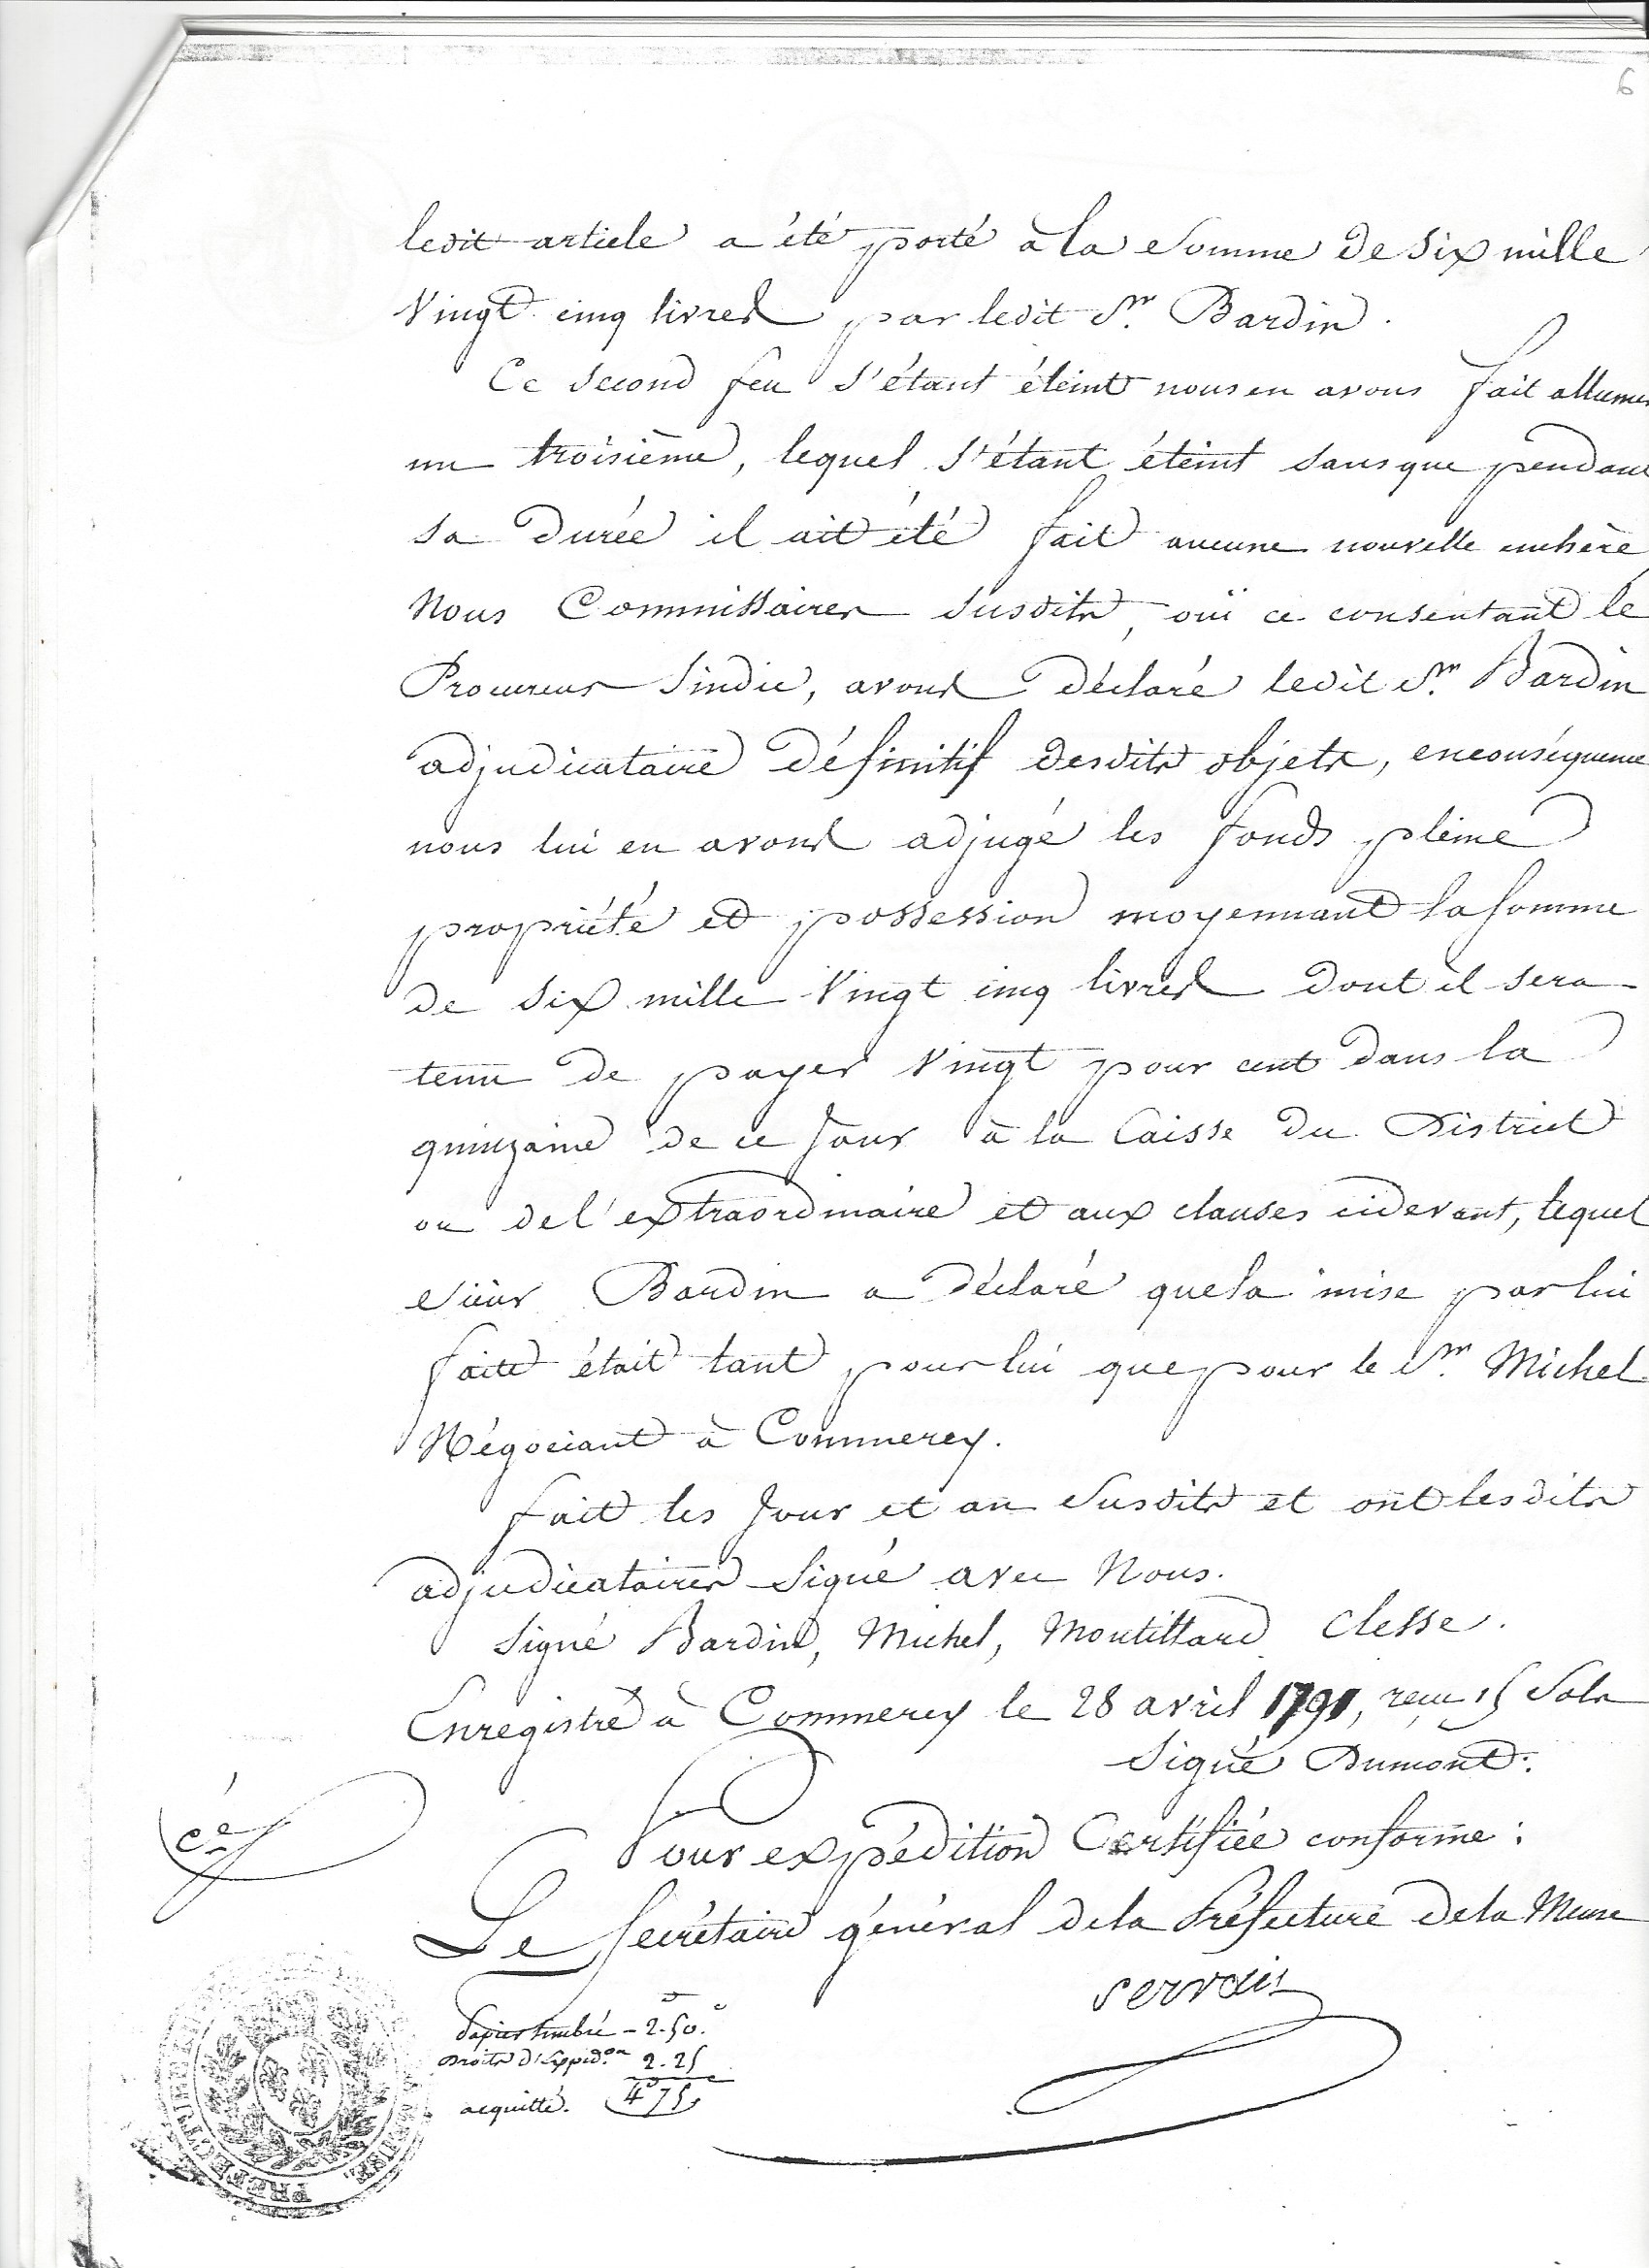 6
ledit article a été porté à la Somme de Six mille
Vingt cinq livres par ledit Sr. Bardin.
Ce Second feu s'étant éteint nous en avons fait allumer
un troisième, lequel s'étant éteint sans que pendant
sa Durée il ait été fait aucune nouvelle enchère,
Nous Commissaires Susdits, ouï ce consentant le
Procureur Sindic, avons déclaré ledit Sr. Bardin
adjudicataire Définitif desdits objets, en conséquence
nous lui en avons adjugé les fonds pleine
propriété et possession moyennant la somme
de Six mille Vingt cinq livres dont il sera
tenu de payer Vingt pour cent dans la
quinzaine de ce Jour à la Caisse du District
ou de l'extraordinaire et aux clauses cidevant, lequel
Sieur Bardin a déclaré que la mise par lui
faite était tant pour lui que pour le Sr. Michel
Négociant à Commercy.
fait les Jour et an Susdits et ont lesdits
adjudicataires Signé avec Nous.
Signé Bardin, Michel, Montillard Clesse.
Enregistré à Commercy le 28 avril 1791, reçu 15 Sols
Signé Dumont.
Pour expédition Certifiée conforme :
Le Secrétaire général de la Préfecture de la Meuse
Servais
Papier timbré - 2.50.
Droits d'Expidon 2.25
acquitté. 4 75
PREFECTURE
MEUSE